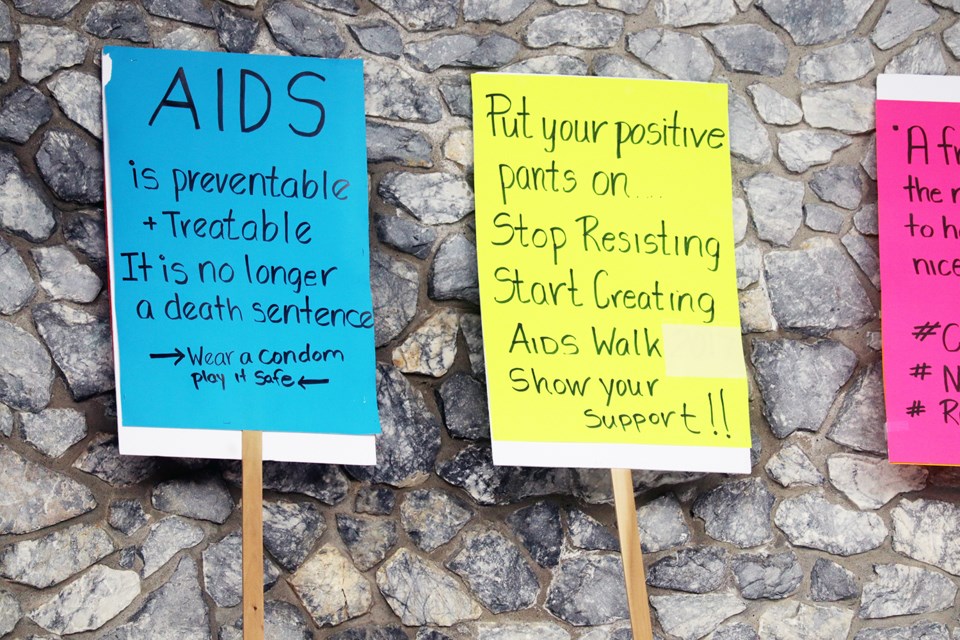 AIDS
is preventable
+ Treatable
It is no longer
a death sentence
→ Wear a condom
play it safe ←
Put your positive
pants on....
Stop Resisting
Start Creating
AIDS Walk
Show your
support!!
A
the
to
nice
#
#
#